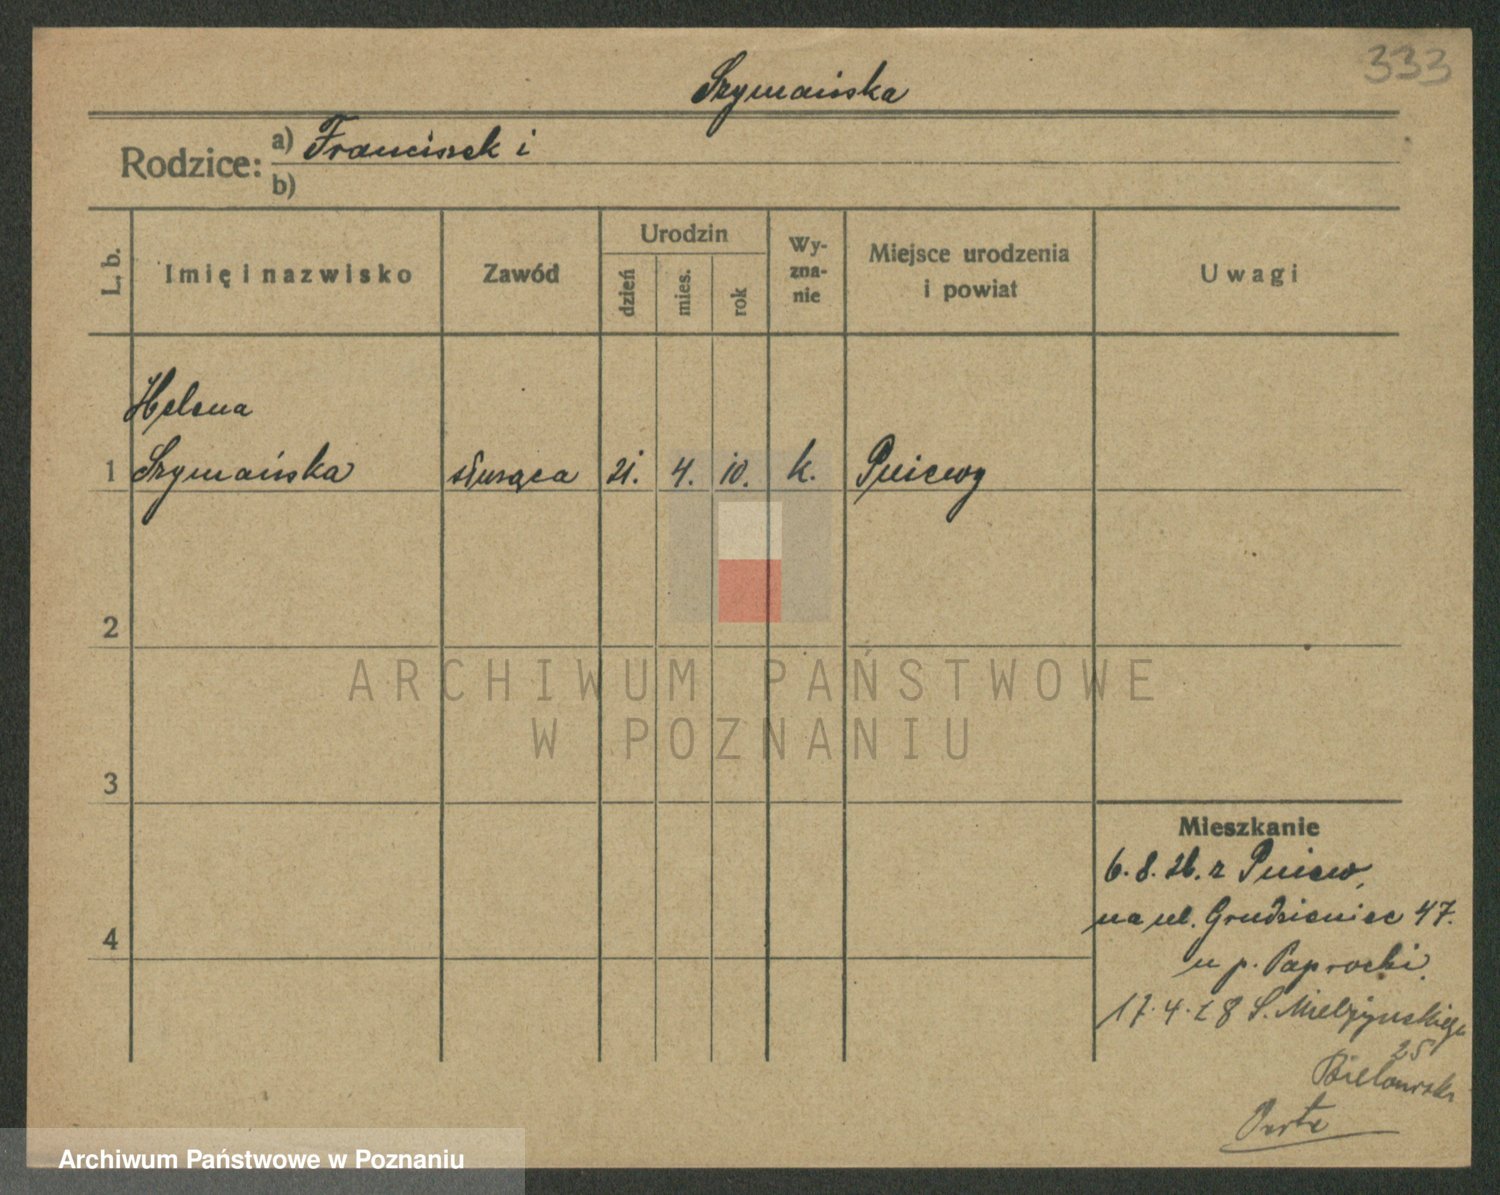 333
Szymańska
Rodzice: a) Franciszek i
b)
L. b.
Imię i nazwisko
Zawód
Urodzin
dzień
mies.
rok
Wy-
zna-
nie
Miejsce urodzenia
i powiat
Uwagi
Helena
1 Szymańska służąca 21. 4. 10. k. Pniewy
2
ARCHIWUM PAŃSTWOWE
W POZNANIU
3
Mieszkanie
6. 8. 26. z Pniew,
na ul. Grudzieniec 47.
4
u p. Paprocki.
17. 4. 28 S. Mielżyńskiego
25
Archiwum Państwowe w Poznaniu